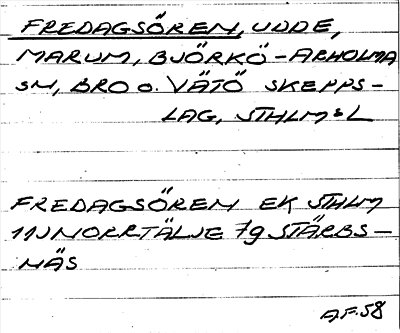 FREDAGSÖREN, UDDE,
MARUM, BJÖRKÖ-ARHOLMA
SN, BRO O. VÄTÖ SKEPPS-
LAG, STHLMS L
FREDAGSÖREN EK STHLM
11J NORRTÄLJE 7g STÄRBS-
NÄS
AF.58